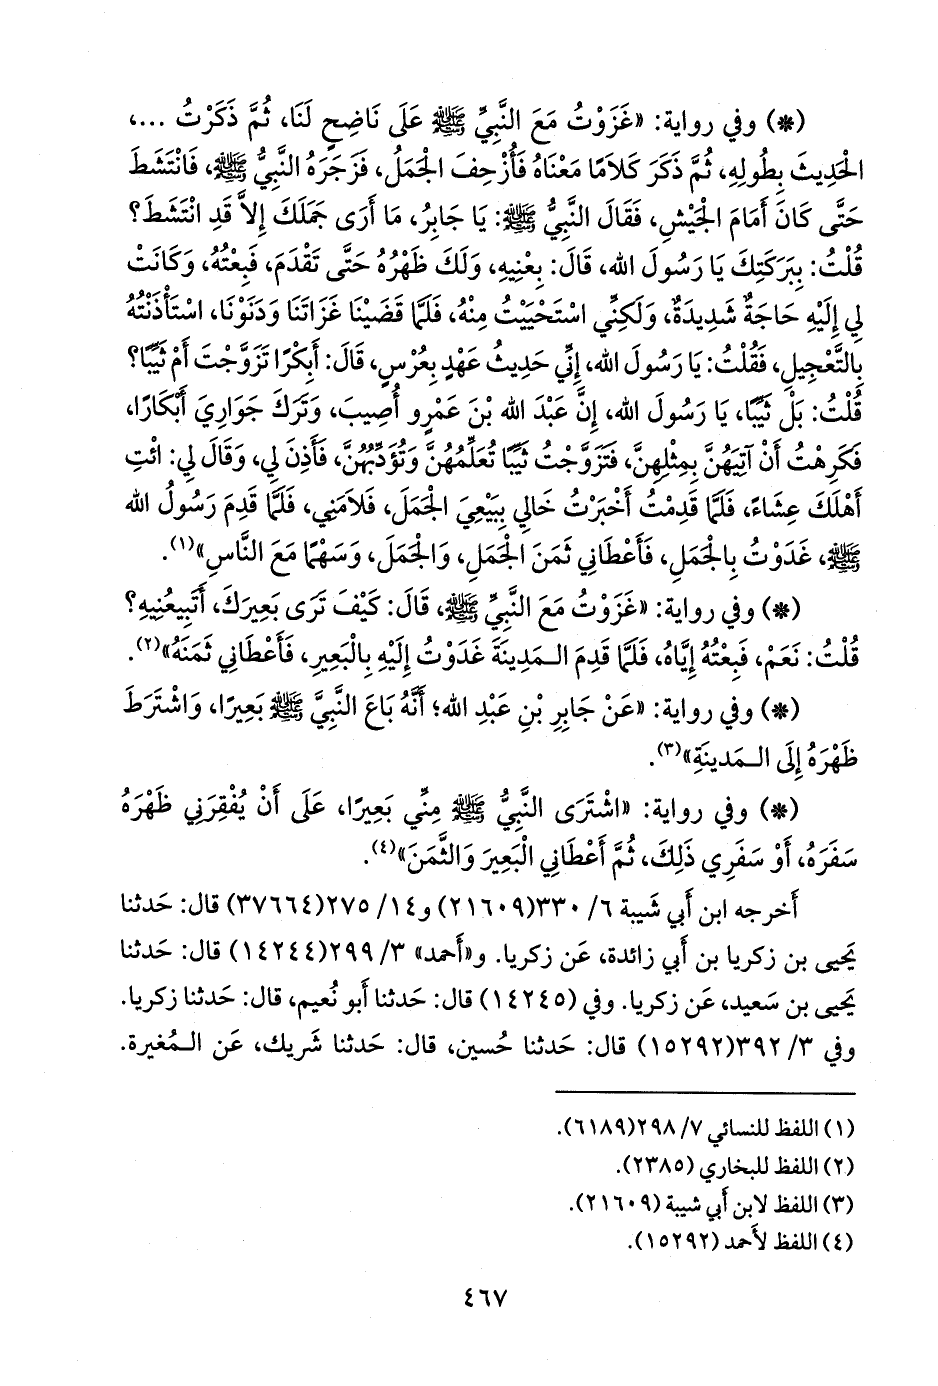 (*) وفي رواية: «غَزَوْتُ مَعَ النَّبِيِّ ﷺ عَلَى نَاضِحٍ لَنَا، ثُمَّ ذَكَرْتُ ...،
الْحَدِيثَ بِطُولِهِ، ثُمَّ ذَكَرَ كَلَامًا مَعْنَاهُ فَأُزْحِفَ الْجَمَلُ، فَزَجَرَهُ النَّبِيُّ ﷺ، فَانْتَشَطَ
حَتَّى كَانَ أَمَامَ الْجَيْشِ، فَقَالَ النَّبِيُّ ﷺ: يَا جَابِرُ، مَا أَرَى جَمَلَكَ إِلاَّ قَدِ انْتَشَطَ؟
قُلْتُ: بِبَرَكَتِكَ يَا رَسُولَ الله، قَالَ: بِعْنِيهِ، وَلَكَ ظَهْرُهُ حَتَّى تَقْدَمَ، فَبِعْتُهُ، وَكَانَتْ
لِي إِلَيْهِ حَاجَةٌ شَدِيدَةٌ، وَلَكِنِّي اسْتَحْيَيْتُ مِنْهُ، فَلَمَّا قَضَيْنَا غَزَاتَنَا وَدَنَوْنَا، اسْتَأْذَنْتُهُ
بِالتَّعْجِيلِ، فَقُلْتُ: يَا رَسُولَ الله، إِنِّي حَدِيثُ عَهْدٍ بِعُرْسٍ، قَالَ: أَبِكْرًا تَزَوَّجْتَ أَمْ ثَيِّبًا؟
قُلْتُ: بَلْ ثَيِّبًا، يَا رَسُولَ الله، إِنَّ عَبْدَ الله بْنَ عَمْرٍو أُصِيبَ، وَتَرَكَ جَوَارِيَ أَبْكَارًا،
فَكَرِهْتُ أَنْ آتِيَهُنَّ بِمِثْلِهِنَّ، فَتَزَوَّجْتُ ثَيِّبًا تُعَلِّمُهُنَّ وَتُؤَدِّبُهُنَّ، فَأَذِنَ لِي، وَقَالَ لِي: ائْتِ
أَهْلَكَ عِشَاءً، فَلَمَّا قَدِمْتُ أَخْبَرْتُ خَالِي بِبَيْعِيَ الْجَمَلَ، فَلَامَنِي، فَلَمَّا قَدِمَ رَسُولُ الله
ﷺ، غَدَوْتُ بِالْجَمَلِ، فَأَعْطَانِي ثَمَنَ الْجَمَلِ، وَالْجَمَلَ، وَسَهْمًا مَعَ النَّاسِ»(١).
(*) وفي رواية: «غَزَوْتُ مَعَ النَّبِيِّ ﷺ، قَالَ: كَيْفَ تَرَى بَعِيرَكَ، أَتَبِيعُنِيهِ؟
قُلْتُ: نَعَمْ، فَبِعْتُهُ إِيَّاهُ، فَلَمَّا قَدِمَ الـمَدِينَةَ غَدَوْتُ إِلَيْهِ بِالْبَعِيرِ، فَأَعْطَانِي ثَمَنَهُ»(٢).
(*) وفي رواية: «عَنْ جَابِرِ بْنِ عَبْدِ الله؛ أَنَّهُ بَاعَ النَّبِيَّ ﷺ بَعِيرًا، وَاشْتَرَطَ
ظَهْرَهُ إِلَى الـمَدِينَةِ»(٣).
(*) وفي رواية: «اشْتَرَى النَّبِيُّ ﷺ مِنِّي بَعِيرًا، عَلَى أَنْ يُفْقِرَنِي ظَهْرَهُ
سَفَرَهُ، أَوْ سَفَرِي ذَلِكَ، ثُمَّ أَعْطَانِي الْبَعِيرَ وَالثَّمَنَ»(٤).
أَخرجه ابن أَبي شَيبة ٦/ ٣٣٠(٢١٦٠٩) و١٤/ ٢٧٥(٣٧٦٦٤) قال: حَدثنا
يَحيى بن زكريا بن أَبي زائدة، عَن زكريا. و«أَحمد» ٣/ ٢٩٩(١٤٢٤٤) قال: حَدثنا
يَحيى بن سَعيد، عَن زكريا. وفي (١٤٢٤٥) قال: حَدثنا أَبو نُعيم، قال: حَدثنا زكريا.
وفي ٣/ ٣٩٢(١٥٢٩٢) قال: حَدثنا حُسين، قال: حَدثنا شَريك، عَن الـمُغيرة.
(١) اللفظ للنسائي ٧/ ٢٩٨(٦١٨٩).
(٢) اللفظ للبخاري (٢٣٨٥).
(٣) اللفظ لابن أَبي شيبة (٢١٦٠٩).
(٤) اللفظ لأَحمد (١٥٢٩٢).
٤٦٧